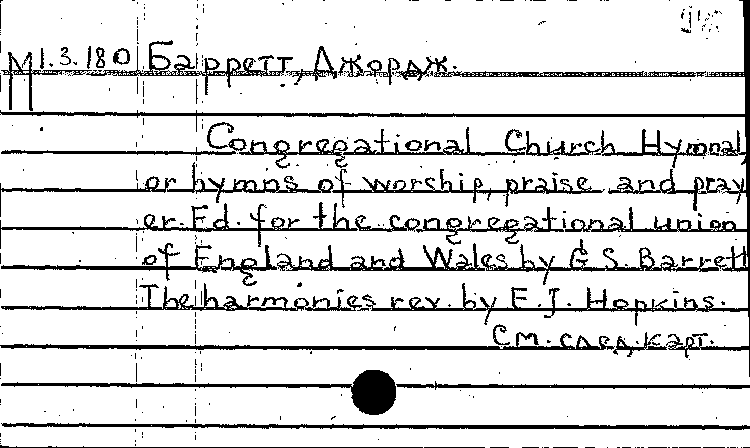 M 1.3.180 Барретт, Джордж.
Congregational Church Hymnal,
or hymns of worship, praise and pray
er. Ed. for the congregational union
of England and Wales by G. S. Barrett
The harmonies rev. by E. J. Hopkins.
См. след. карт.